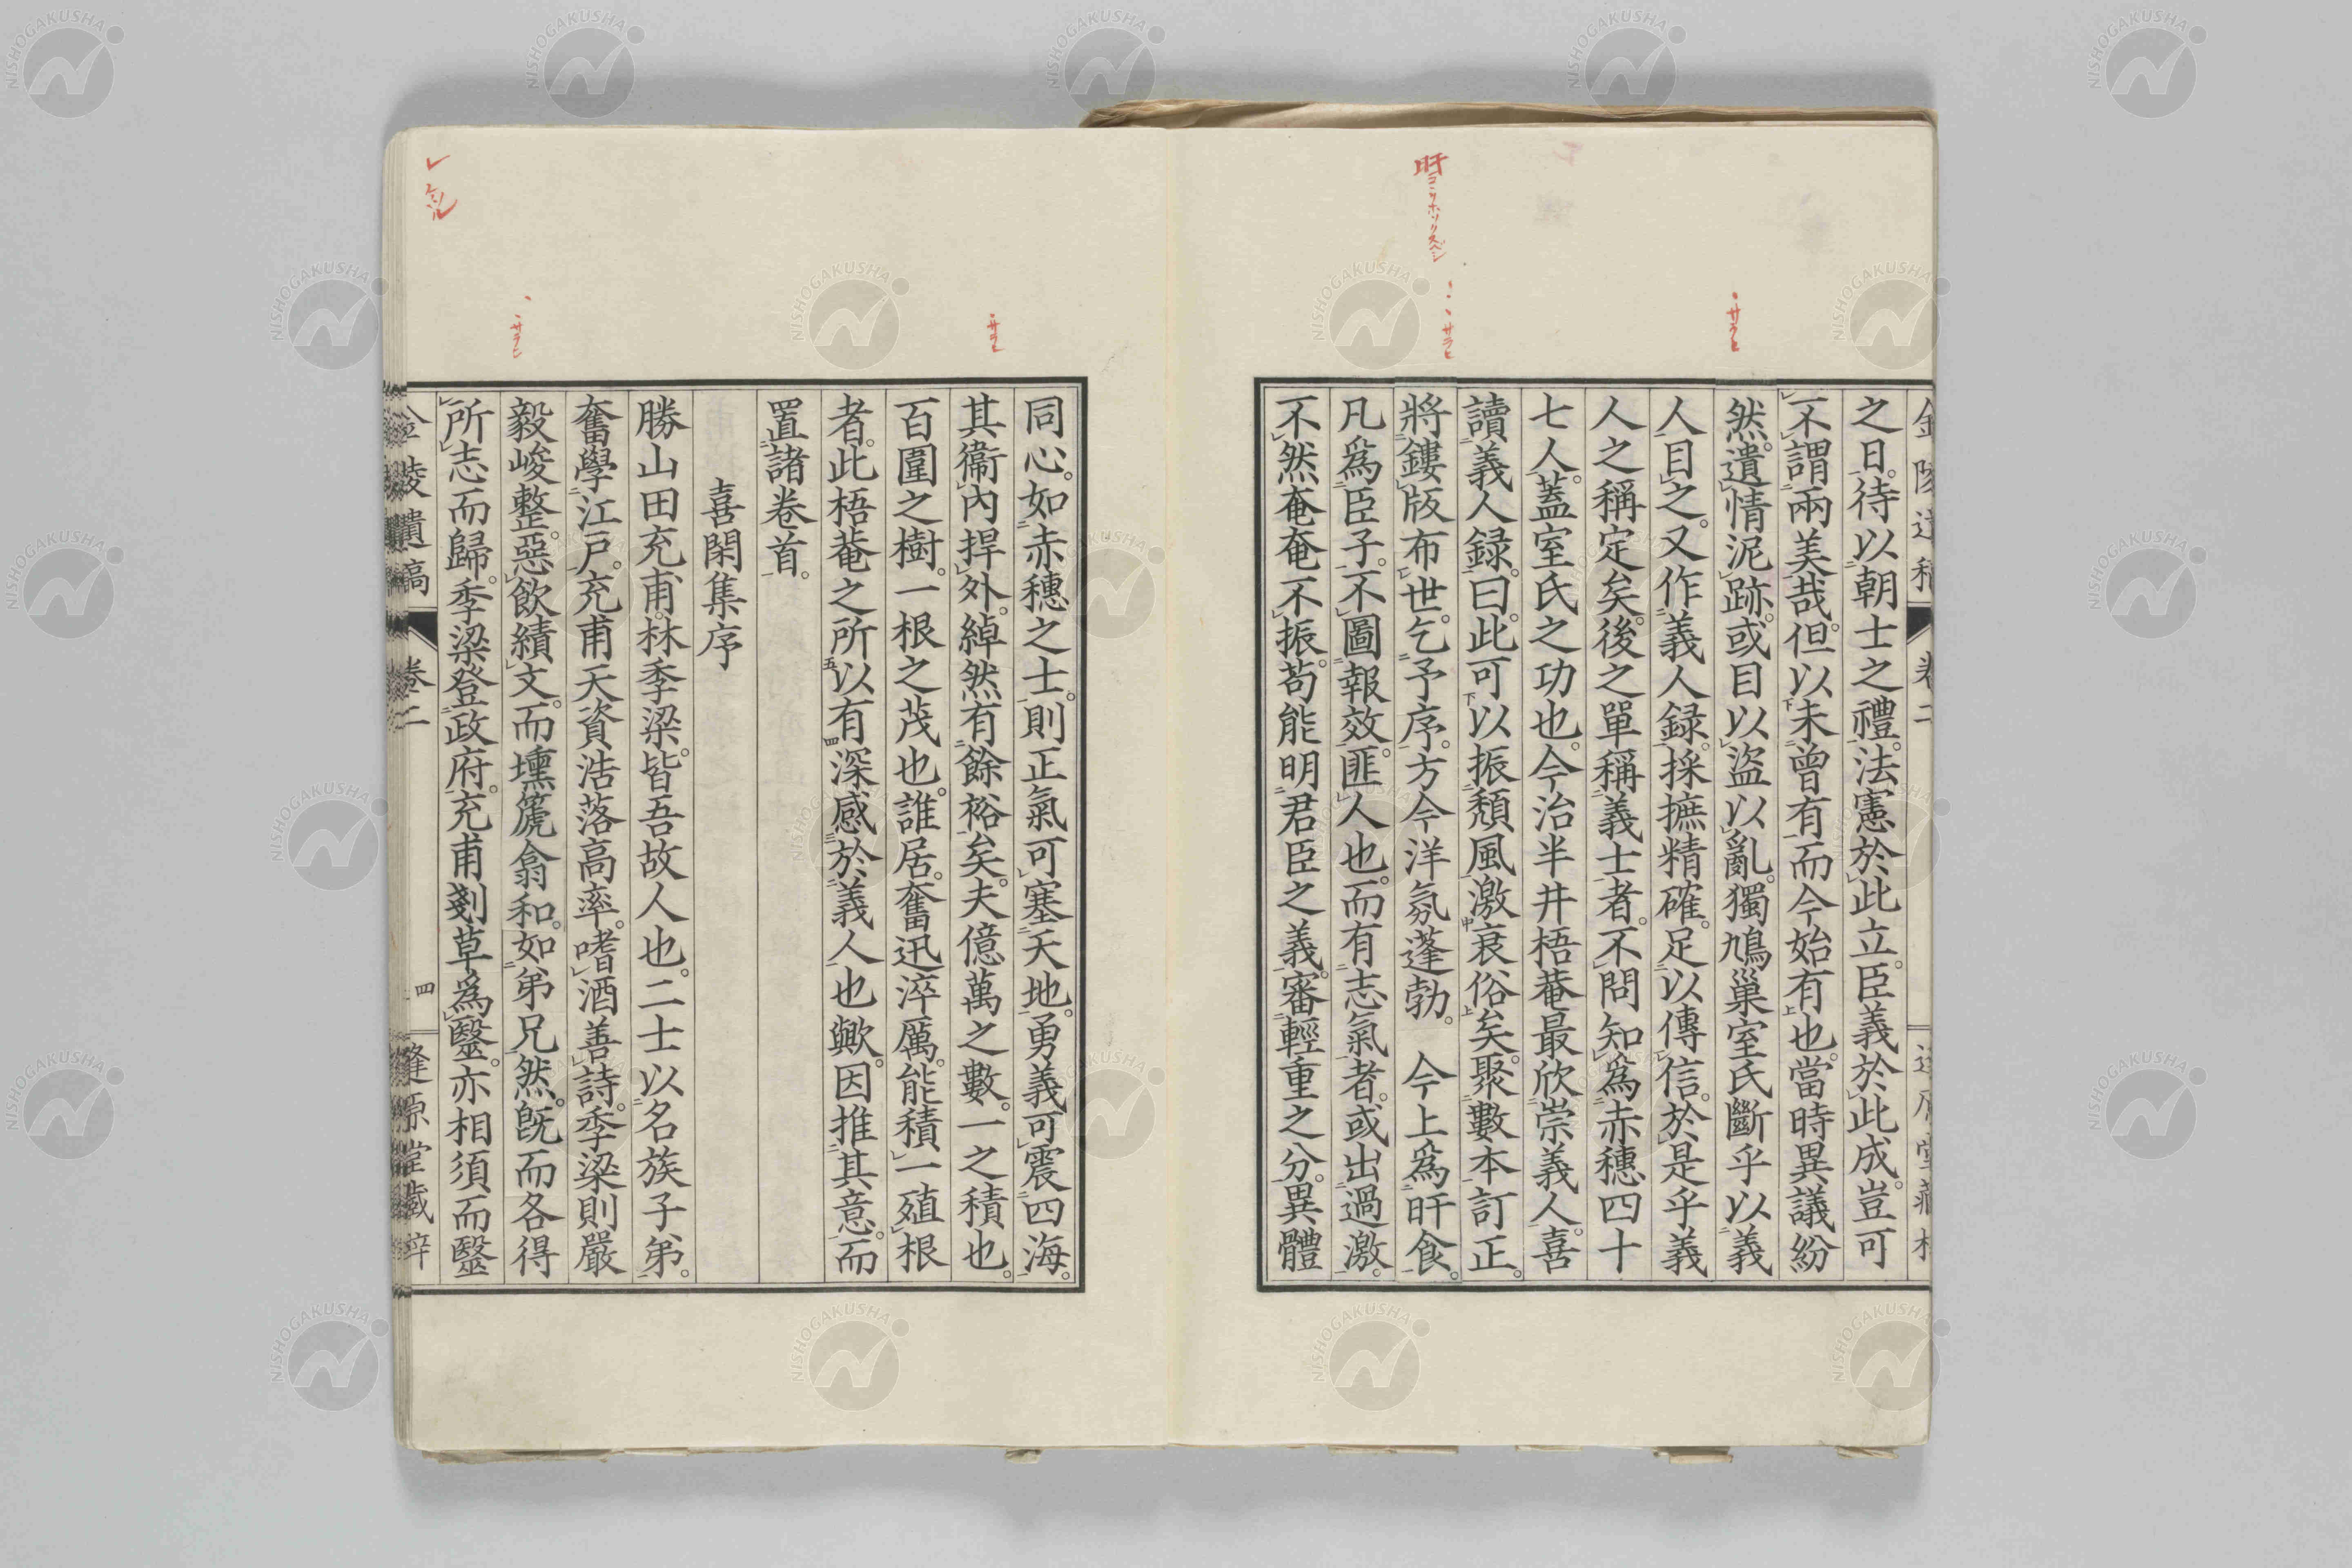 之日。待以朝士之禮。法憲於此立。臣義於此成。豈可
不謂兩美哉。但以未曾有而今始有也。當時異議紛
然。遺情泥跡。或目以盜以亂。獨鳩巢室氏斷乎以義
人目之。又作義人録。採摭精確。足以傳信。於是乎義
人之稱定矣。後之單稱義士者。不問知爲赤穗四十
七人。蓋室氏之功也。今治半井梧菴最欣崇義人。喜
讀義人録。曰。此可以振頽風激衰俗矣。聚數本訂正。
將鏤版布世。乞予序。方今洋氛蓬勃。　今上爲旰食。
凡爲臣子。不圖報效。匪人也。而有志氣者。或出過激。
不然奄奄不振。苟能明君臣之義。審輕重之分。異體
同心。如赤穗之士。則正氣可塞天地。勇義可震四海。
其衞內捍外。綽然有餘裕矣。夫億萬之數。一之積也。
百圍之樹。一根之茂也。誰居。奮迅淬厲。能積一殖根
者。此梧菴之所以有深感於義人也歟。因推其意。而
置諸卷首。
喜閑集序
勝山田充甫。林季梁。皆吾故人也。二士以名族子弟。
奮學江戸。充甫天資浩落高率。嗜酒善詩。季梁則嚴
毅峻整。惡飮績文。而壎篪翕和。如弟兄然。旣而各得
所志而歸。季梁登政府。充甫剗草爲毉。亦相須而毉
金陵遺稿
卷二
四
逢原堂藏梓